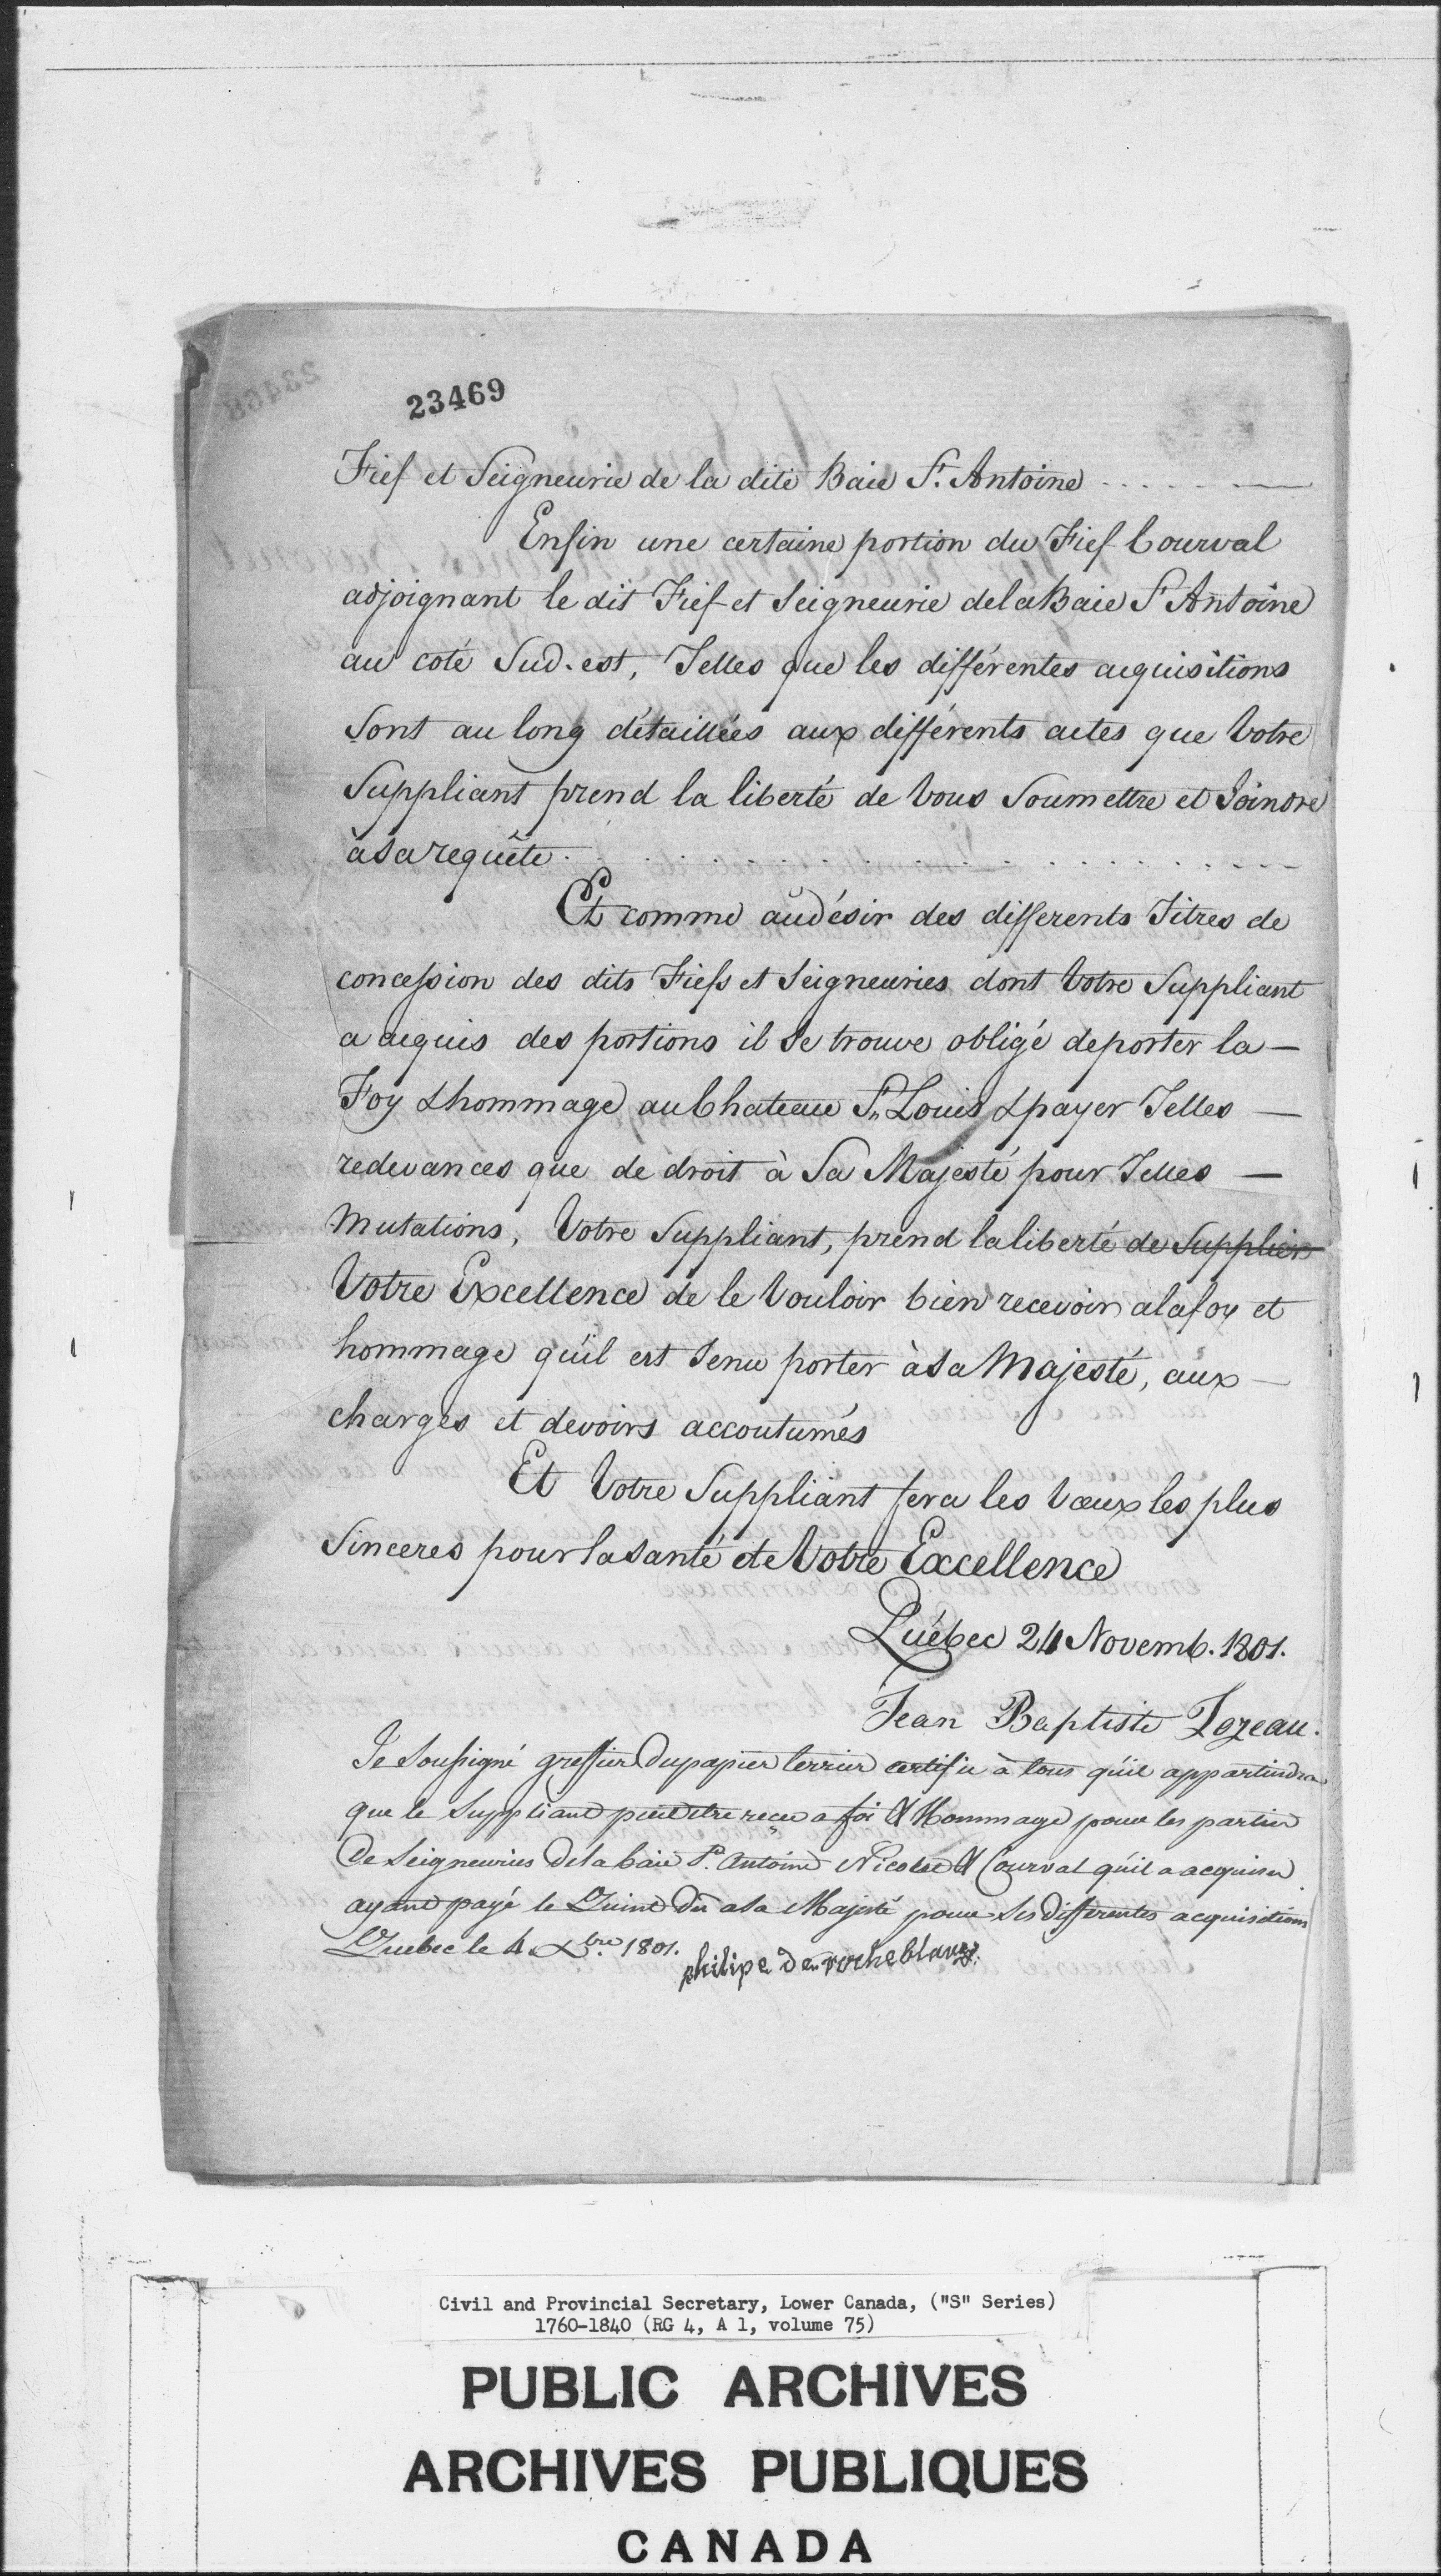 23469
Fief et Seigneurie de la dite Baie St. Antoine
Enfin une certaine portion du Fief Courval
adjoignant le dit Fief et Seigneurie dela Baie St Antoine
au coté Sud-est, Telles que les différentes acquisitions
Sont au long détaillées aux différents actes que Votre
Suppliant prend la liberté de Vous Soumettre et Joindre
à sa requête
Et comme au désir des differents Titres de
concession des dits Fiefs et Seigneuries dont Votre Suppliant
a acquis des portions il se trouve obligé de porter la —
Foy & hommage au Chateau St. Louis & payer Telles —
redevances que de droit à Sa Majesté pour Telles —
Mutations, Votre Suppliant, prend la liberté de Supplier
Votre Excellence de le Vouloir bien recevoir a la foy et
hommage qu'il est tenu porter à sa Majesté, aux —
charges et devoirs accoutumés
Et Votre Suppliant fera les Vœux les plus
Sinceres pour la santé de Votre Excellence
Québec 24 Novemb. 1801.
Jean Baptiste Lozeau.
Je Soussigné greffier du papier terrier certifie à tous qu'il appartiendra
que le Suppliant peut etre reçu a foi & Hommage pour les parties
De Seigneuries de la baie St. Antoine Nicolet & Courval qu'il a acquises
ayant payé le Quint dû a sa Majesté pour ses differentes acquisitions
Quebec le 4 Xbre 1801.
philipe de rocheblave
Civil and Provincial Secretary, Lower Canada, ("S" Series)
1760-1840 (RG 4, A 1, volume 75)
PUBLIC ARCHIVES
ARCHIVES PUBLIQUES
CANADA